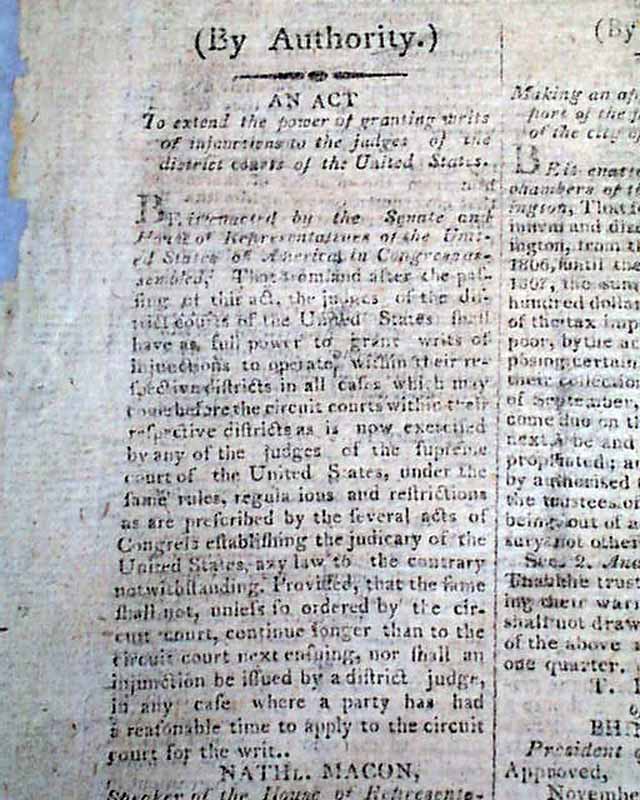 (By Authority.)
AN ACT
To extend the power of granting writs
of injunctions to the judges of the
district courts of the United States.
BE it enacted by the Senate and
House of Representatives of the Uni-
ed States of America, in Congress as-
sembled, That from and after the paſ-
ſing of this act, the judges of the diſ-
trict courts of the United States ſhall
have as full power to grant writs of
injunctions to operate, within their re-
ſpective diſtricts in all caſes which may
come before the circuit courts within their
reſpective diſtricts as is now exerciſed
by any of the judges of the ſupreme
court of the United States, under the
ſame rules, regula ions and reſtrictions
as are preſcribed by the ſeveral acts of
Congreſs eſtabliſhing the judicary of the
United States, any law to the contrary
notwithſtanding. Provided, that the ſame
ſhall not, unleſs ſo ordered by the cir-
cuit court, continue longer than to the
circuit court next enſuing, nor ſhall an
injunction be iſſued by a diſtrict judge,
in any caſe where a party has had
a reaſonable time to apply to the circuit
court for the writ..
NATHL. MACON,
Speaker of the House of Representa-
(By
Making an ap
port of the
of the city of
BE it enacte
chambers of t
ington, That
ington, from t
1806, until the
1807, the sum
hundred dolla
of the tax imp
poor, by the ac
posing certain
their collection
of September,
come due on th
next a be and
propriated; a
by authorised
the trustees o
being out of a
sury not other
Sec. 2. And
That the trus
ing their warr
shall not draw
of the above
one quarter.
President o
Approved,
Novembe